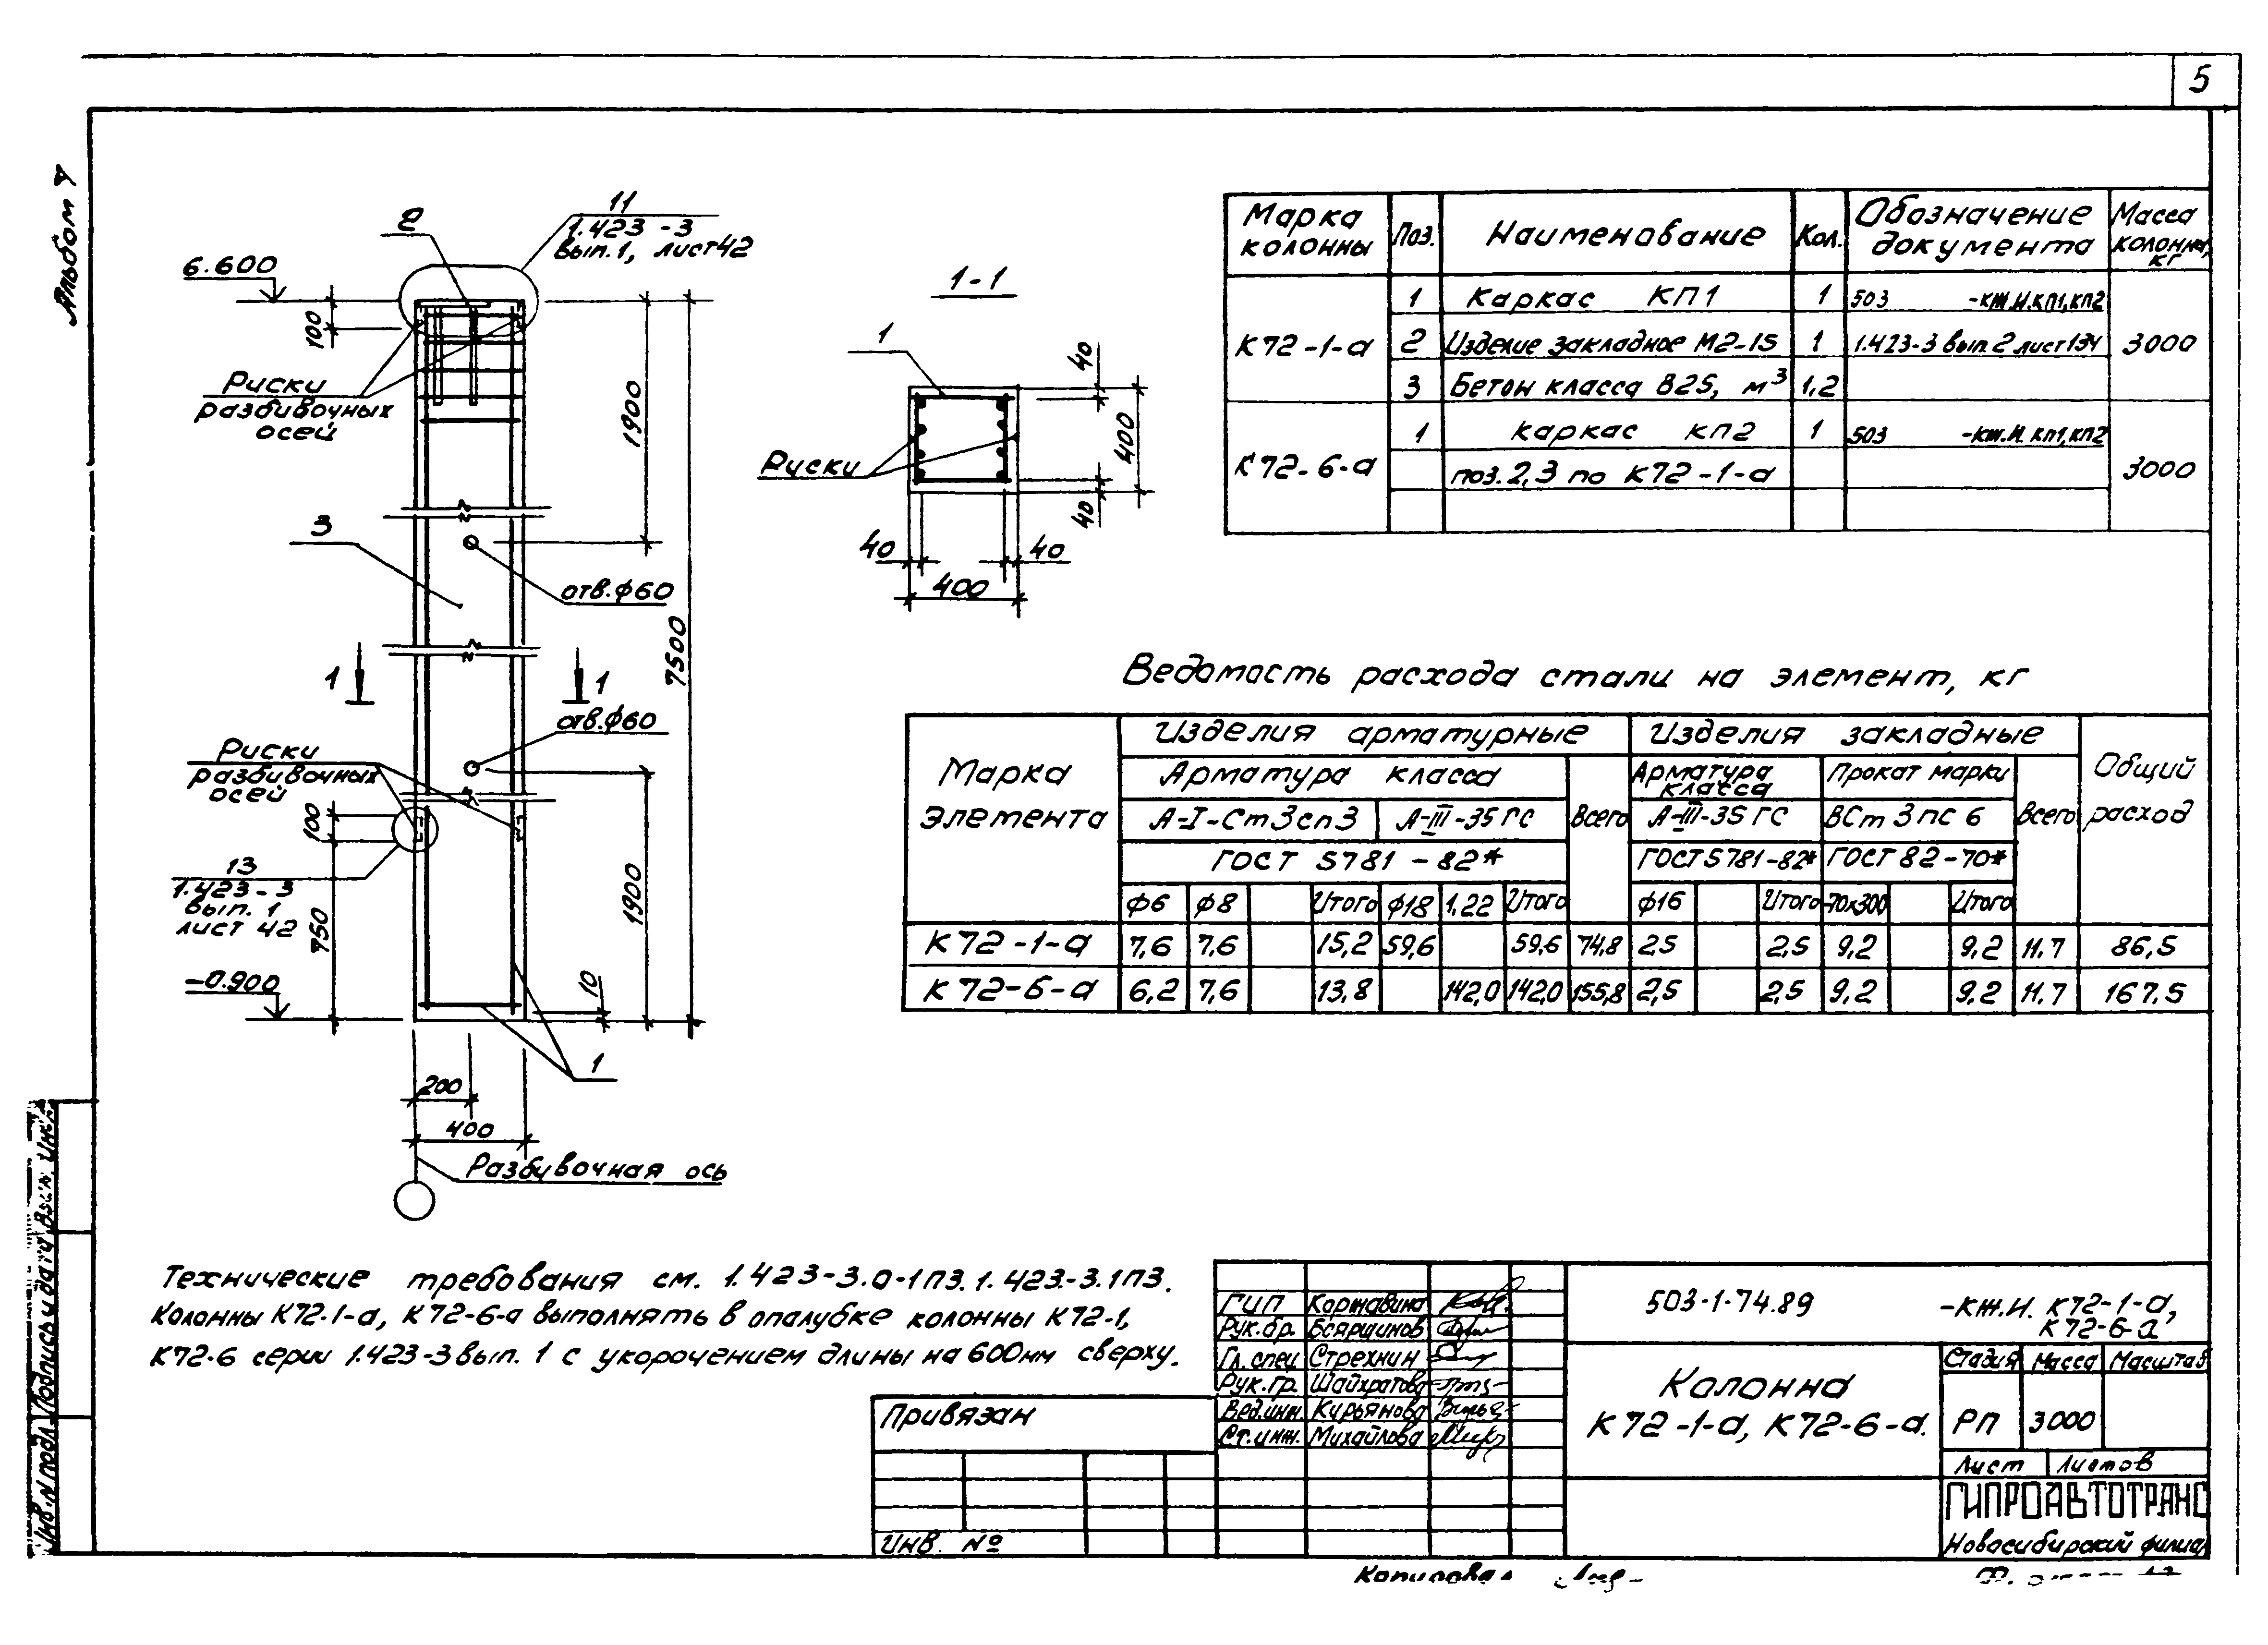 5
Альбом 4
2
11
1.423-3
вып.1, лист 42
6.600
100
Риски
разбивочных
осей
1900
3
отв.ф60
7500
1
1
отв.ф60
Риски
разбивочных
осей
100
13
1.423-3
вып. 1
лист 42
750
1900
-0.900
10
1
200
400
Разбивочная ось
1-1
1
40
400
Риски
40
40
40
400
Марка колонны Поз. Наименование Кол. Обозначение документа Масса колонны, кг
К72-1-а 1 Каркас КП1 1 503 -КЖ.И.КП1,КП2 3000
2 Изделие закладное М2-15 1 1.423-3 вып.2 лист 134
3 Бетон класса В25, м³ 1,2
К72-6-а 1 Каркас КП2 1 503 -КЖ.И. КП1,КП2 3000
поз. 2,3 по К72-1-а
Ведомость расхода стали на элемент, кг
Марка элемента Изделия арматурные Изделия закладные Общий расход
Арматура класса Всего Арматура класса Прокат марки Всего
А-I-Ст3сп3 А-III-35ГС А-III-35ГС ВСт3пс6
ГОСТ 5781-82* ГОСТ5781-82* ГОСТ82-70*
ф6 ф8 Итого ф18 1,22 Итого ф16 Итого -70х300 Итого
К72-1-а 7,6 7,6 15,2 59,6 59,6 74,8 2,5 2,5 9,2 9,2 11,7 86,5
К72-6-а 6,2 7,6 13,8 142,0 142,0 155,8 2,5 2,5 9,2 9,2 11,7 167,5
Технические требования см. 1.423-3.0-1ПЗ. 1.423-3.1ПЗ.
Колонны К72.1-а, К72-6-а выполнять в опалубке колонны К72-1,
К72-6 серии 1.423-3 вып. 1 с укорочением длины на 600мм сверху.
Привязан
Инв. №
ГИП Каржавина
Рук.бр. Бояршинов
Гл.спец Стрехнин
Рук.гр. Шайхратова
Вед.инж. Курьянова
Ст.инж. Михайлова
503-1-74.89
-КЖ.И. К72-1-а,
К72-6-а
Колонна
К72-1-а, К72-6-а.
Стадия Масса Масштаб
РП 3000
Лист Листов
ГИПРОАВТОТРАНС
Новосибирский филиал
Копировал
Инв.N подл. Подпись и дата Взам. инв.